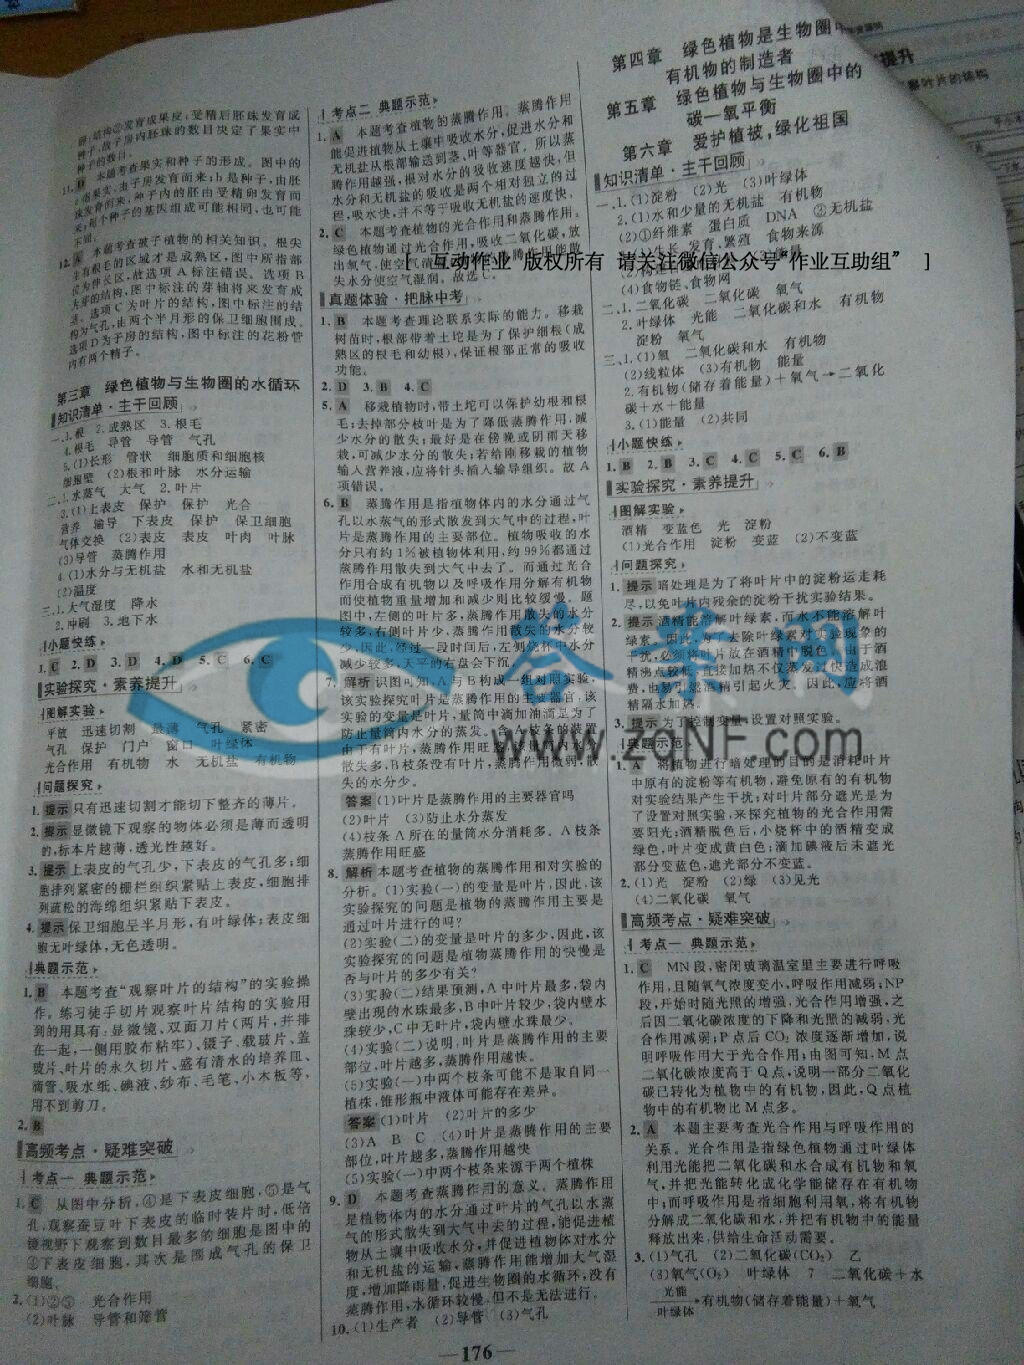 种子,故子房内胚珠的数目决定了果实中
种子的数目。
11. B 本题考查果实和种子的形成。图中的
a南果实,由子房发育而来;b是种子,由胚
珠发育而来,种子内的胚由受精卵发育而
来;每个种子的基因组成可能相同,也可能
不同。
12. A 本题考查被子植物的相关知识。根尖
第三章 绿色植物与生物圈的水循环
知识清单·主干回顾
一、1.根 2.成熟区 3.根毛
4.根毛 导管 导管 气孔
5.(1)长形 管状 细胞质和细胞核
细胞壁 (2)根和叶脉 水分运输
二、1.水蒸气 大气 2.叶片
3.(1)上表皮 保护 保护 光合
营养 输导 下表皮 保护 保卫细胞
气体交换 (2)表皮 表皮 叶肉 叶脉
(3)导管 蒸腾作用
4.(1)水分与无机盐 水和无机盐
(2)温度
三、1.大气湿度 降水
2.冲刷 3.地下水
小题快练
1. C 2. D 3. D 4. D 5. C 6. C
实验探究·素养提升
图解实验
平放 迅速切割 最薄 气孔 紧密
气孔 保护 门户 窗口 叶绿体
光合作用 有机物 水 无机盐 有机物
问题探究
1. 提示 只有迅速切割才能切下整齐的薄片。
2. 提示 显微镜下观察的物体必须是薄而透明
的,标本片越薄,透光性越好。
3. 提示 上表皮的气孔少,下表皮的气孔多;细
胞排列紧密的栅栏组织紧贴上表皮,细胞排
列疏松的海绵组织紧贴下表皮。
4. 提示 保卫细胞呈半月形,有叶绿体;表皮细
胞无叶绿体,无色透明。
典题示范
1. B 本题考查“观察叶片的结构”的实验操
作。练习徒手切片观察叶片结构的实验用
到的用具有:显微镜、双面刀片(两片,并排
在一起,一侧用胶布粘牢)、镊子、载玻片、盖
玻片、叶片的永久切片、盛有清水的培养皿、
滴管、吸水纸、碘液、纱布、毛笔、小木板等,
用不到剪刀。
2. B
高频考点·疑难突破
考点一 典题示范
1. C 从图中分析,④是下表皮细胞,⑤是气
孔,观察蚕豆叶下表皮的临时装片时,低倍
镜视野下观察到数目最多的细胞是图中的
④下表皮细胞,其次是围成气孔的保卫
细胞。
2. (1)②③ 光合作用
(2)叶脉 导管和筛管
考点二 典题示范
1. A 本题考查植物的蒸腾作用。蒸腾作用
能促进植物从土壤中吸收水分,促进水分和
无机盐从根部输送到茎、叶等器官。所以蒸
腾作用越强,根对水分的吸收速度越快,但
水分和无机盐的吸收是两个相对独立的过
程,吸水快,并不等于吸收无机盐的速度快。
2. C 本题考查植物的光合作用和蒸腾作用。
绿色植物通过光合作用,吸收二氧化碳,放
失水分使空气湿润。故选C。
[“互动作业”版权所有 请关注微信公众号“作业互助组” ]
真题体验·把脉中考
1. B 本题考查理论联系实际的能力。移栽
树苗时,根部带着土坨是为了保护细根(成
熟区的根毛和幼根),保证根部正常的吸收
功能。
2. D 3. B 4. C
5. A 移栽植物时,带土坨可以保护幼根和根
毛;去掉部分枝叶是为了降低蒸腾作用,减
少水分的散失;最好是在傍晚或阴雨天移
栽,可减少水分的散失;若给刚移栽的植物
输入营养液,应将针头插入输导组织。故A
项错误。
6. B 蒸腾作用是指植物体内的水分通过气
孔以水蒸气的形式散发到大气中的过程,叶
片是蒸腾作用的主要部位。植物吸收的水
分只有约1%被植物体利用,约99%都通过
蒸腾作用散失到大气中去了。而通过光合
作用合成有机物以及呼吸作用分解有机物
而使植物重量增加和减少则比较缓慢。题
图中,左侧的叶片多,蒸腾作用散失的水分
较多,右侧叶片少,蒸腾作用散失的水分较
少,因此,经过一段时间后,左侧烧杯中水分
减少较多,天平的右盘会下沉。
7. 解析 识图可知,A与B构成一组对照实验,
该实验探究叶片是蒸腾作用的主要器官,该
实验的变量是叶片,量筒中滴加油滴是为了
防止量筒内水分的蒸发。A枝条的装置
由于有叶片,蒸腾作用旺盛,该枝条内水分
散失多,B枝条没有叶片,蒸腾作用微弱,散
失的水分少。
答案 (1)叶片是蒸腾作用的主要器官吗
(2)叶片 (3)防止水分蒸发
(4)枝条A所在的量筒水分消耗多。A枝条
蒸腾作用旺盛
8. 解析 本题考查植物的蒸腾作用和对实验的
分析。(1)实验(一)的变量是叶片,因此,该
实验探究的问题是植物的蒸腾作用主要是
通过叶片进行的吗?
(2)实验(二)的变量是叶的多少,因此,该
实验探究的问题是植物蒸腾作用的快慢是
否与叶片的多少有关?
(3)实验(二)结果预测,A中叶片最多,袋内
壁出现的水珠最多,B中叶片较少,袋内壁水
珠较少,C中无叶片,袋内壁水珠最少。
(4)实验(二)说明,叶片是蒸腾作用的主要
部位,叶片越多,蒸腾作用越快。
(5)实验(一)中两个枝条可能不是取自同一
植株,锥形瓶中液体可能存在差异。
答案 (1)叶片 (2)叶片的多少
(3)A B C (4)叶片是蒸腾作用的主要
部位,叶片越多,蒸腾作用越快
(5)实验(一)中两个枝条来源于两个植株
9. D 本题考查蒸腾作用的意义。蒸腾作用
是植物体内的水分通过叶片的气孔以水蒸
气的形式散失到大气中去的过程,能促进植
物从土壤中吸收水分,并促进植物体对水分
和无机盐的运输,蒸腾作用能增加大气湿
度,增加降雨量,促进生物圈的水循环,没有
蒸腾作用,水循环较慢,但不是无法进行。
10. (1)生产者 (2)导管 (3)气孔
第四章 绿色植物是生物圈中
有机物的制造者
第五章 绿色植物与生物圈中的
碳—氧平衡
第六章 爱护植被,绿化祖国
知识清单·主干回顾
一、1.(1)淀粉 (2)光 (3)叶绿体
2.(1)水和少量的无机盐 有机物
(2)①纤维素 蛋白质 DNA ②无机盐
(3)生长、发育、繁殖 食物来源
(4)食物链、食物网
二、1.二氧化碳 二氧化碳 氧气
2.叶绿体 光能 二氧化碳和水 有机物
淀粉 氧气
三、1.(1)氧 二氧化碳和水 有机物
(2)线粒体 (3)有机物 能量
2.有机物(储存着能量)+氧气→二氧化
碳+水+能量
3.(1)能量 (2)共同
小题快练
1. B 2. B 3. C 4. C 5. C 6. B
实验探究·素养提升
图解实验
酒精 变蓝色 光 淀粉
(1)光合作用 淀粉 变蓝 (2)不变蓝
问题探究
1. 提示 暗处理是为了将叶片中的淀粉运走耗
尽,以免叶片内残余的淀粉干扰实验结果。
2. 提示 酒精能溶解叶绿素,而水不能溶解叶
绿素。因此,为了去除叶绿素对实验现象的
干扰,必须将叶片放在酒精中脱色。由于酒
精沸点较低,直接加热不仅蒸发过快造成浪
费,也易引燃酒精引起火灾。因此,应将酒
精隔水加热。
3. 提示 为了控制变量,设置对照实验。
典题示范
1. A 将植物进行暗处理的目的是消耗叶片
中原有的淀粉等有机物,避免原有的有机物
对实验结果产生干扰;对叶片部分遮光是为
了设置对照实验,来探究植物的光合作用需
要阳光;酒精脱色后,小烧杯中的酒精变成
绿色,叶片变成黄白色;滴加碘液后未遮光
部分变蓝色,遮光部分不变蓝。
2. (1)光 淀粉 (2)绿 (3)见光
(4)二氧化碳 氧气
高频考点·疑难突破
考点一 典题示范
1. C MN段,密闭玻璃温室里主要进行呼吸
作用,且随氧气浓度变小,呼吸作用减弱;NP
段,开始时随光照的增强,光合作用增强,之
后因二氧化碳浓度的下降和光照的减弱,光
合作用减弱;P点后CO₂浓度逐渐增加,说
明呼吸作用大于光合作用;由图可知,M点
二氧化碳浓度高于Q点,说明一部分二氧化
碳已转化为植物中的有机物,因此,Q点植
物中的有机物比M点多。
2. A 本题主要考查光合作用与呼吸作用的
关系。光合作用是指绿色植物通过叶绿体
利用光能把二氧化碳和水合成有机物和氧
气,并把光能转化成化学能储存在有机物
中;而呼吸作用是指细胞利用氧,将有机物
分解成二氧化碳和水,并把有机物中的能量
释放出来,供给生命活动需要。
3. (1)气孔 (2)二氧化碳(CO₂) 乙
(3)氧气(O₂) 叶绿体 7 二氧化碳+水
光能
叶绿体 →有机物(储存着能量)+氧气
答案网
www.zqNF.com
— 176 —